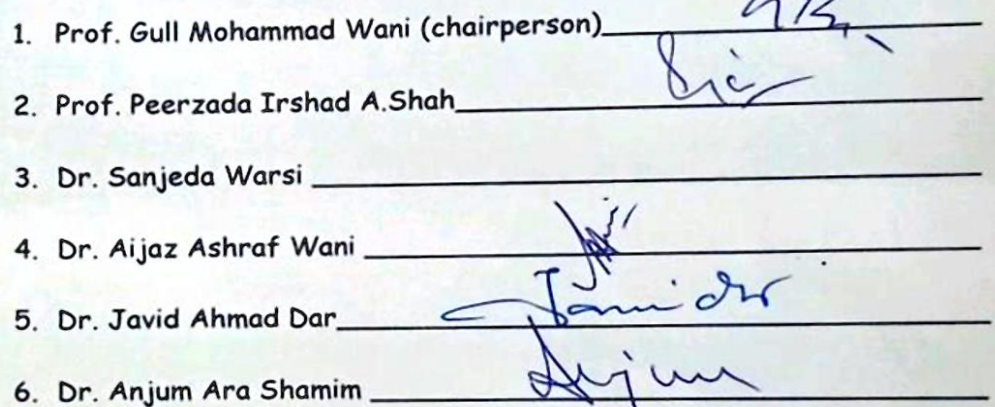 1. Prof. Gull Mohammad Wani (chairperson)
2. Prof. Peerzada Irshad A.Shah
3. Dr. Sanjeda Warsi
4. Dr. Aijaz Ashraf Wani
5. Dr. Javid Ahmad Dar
6. Dr. Anjum Ara Shamim Anjum